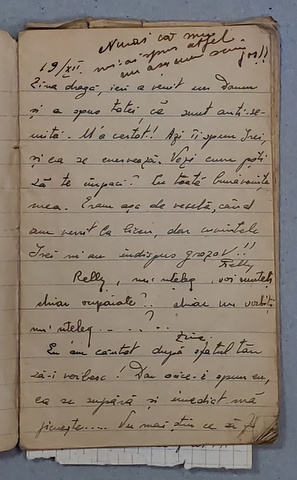 Numai că mi-
mi-ai spus altfel
19/XII.
Zina dragă, ieri a venit un Domn
și a spus tatei că sunt anti-se-
mită. M'a certat! Azi îi spun Irei,
și ea se enervează. Vezi cum poți
să te împaci? Cu toată bunăvoința
mea. Eram așa de veselă, când
am venit la liceu, dar cuvintele
Irei m'au indispus grozav!!
Relly
Relly, nu'nțeleg, voi sunteți
chiar supărate? chiar nu vorbiți
nu'nțeleg . . . . .
Zina
Eu am căutat după sfatul tău
să-i vorbesc! Dar orice-i spun eu,
ea se supără și imediat mă
jignește..... Nu mai știu ce să fac